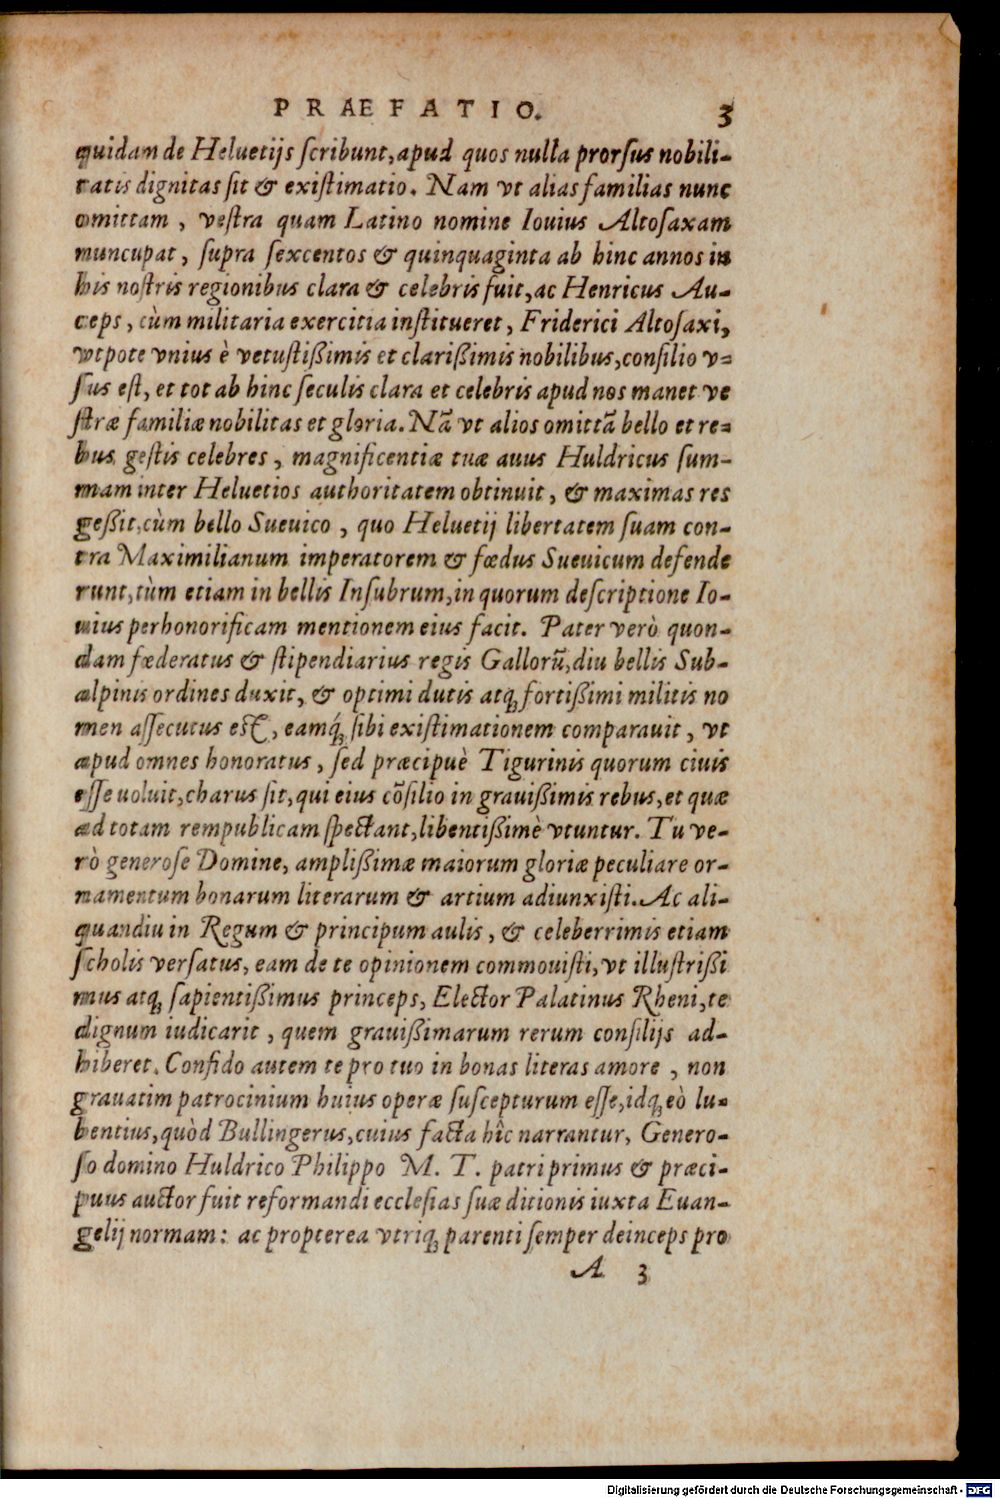 PRAEFATIO. 3
quidam de Heluetijs ſcribunt, apud quos nulla prorſus nobili-
tatis dignitas ſit & exiſtimatio. Nam vt alias familias nunc
omittam, veſtra quam Latino nomine Iouius Altoſaxam
nuncupat, ſupra ſexcentos & quinquaginta ab hinc annos in
his noſtris regionibus clara & celebris fuit, ac Henricus Au-
ceps, cùm militaria exercitia inſtitueret, Friderici Altoſaxi,
vtpote vnius è vetuſtißimis et clarißimis nobilibus, conſilio v-
ſus eſt, et tot ab hinc ſeculis clara et celebris apud nos manet ve
ſtræ familiæ nobilitas et gloria. Nã vt alios omittã bello et re-
bus geſtis celebres, magnificentiæ tuæ auus Huldricus ſum-
mam inter Heluetios authoritatem obtinuit, & maximas res
geßit, cùm bello Sueuico, quo Heluetij libertatem ſuam con-
tra Maximilianum imperatorem & fœdus Sueuicum defende
runt, tùm etiam in bellis Inſubrum, in quorum deſcriptione Io-
uius perhonorificam mentionem eius facit. Pater verò quon-
dam fœderatus & ſtipendiarius regis Gallorũ, diu bellis Sub-
alpinis ordines duxit, & optimi dutis atq; fortißimi militis no
men aſſecutus eſt, eamq́; ſibi exiſtimationem comparauit, vt
apud omnes honoratus, ſed præcipuè Tigurinis quorum ciuis
eſſe uoluit, charus ſit, qui eius cõſilio in grauißimis rebus, et quæ
ad totam rempublicam ſpectant, libentißimè vtuntur. Tu ve-
rò generoſe Domine, amplißimæ maiorum gloriæ peculiare or-
namentum bonarum literarum & artium adiunxiſti. Ac ali-
quandiu in Regum & principum aulis, & celeberrimis etiam
ſcholis verſatus, eam de te opinionem commouiſti, vt illuſtrißi
mus atq; ſapientißimus princeps, Elector Palatinus Rheni, te
dignum iudicarit, quem grauißimarum rerum conſilijs ad-
hiberet. Confido autem te pro tuo in bonas literas amore, non
grauatim patrocinium huius operæ ſuſcepturum eſſe, idq; eò lu-
bentius, quòd Bullingerus, cuius facta hîc narrantur, Genero-
ſo domino Huldrico Philippo M. T. patri primus & præci-
puus auctor fuit reformandi eccleſias ſuæ ditionis iuxta Euan-
gelij normam: ac propterea vtriq; parenti ſemper deinceps pro
A 3
Digitalisierung gefördert durch die Deutsche Forschungsgemeinschaft - DFG